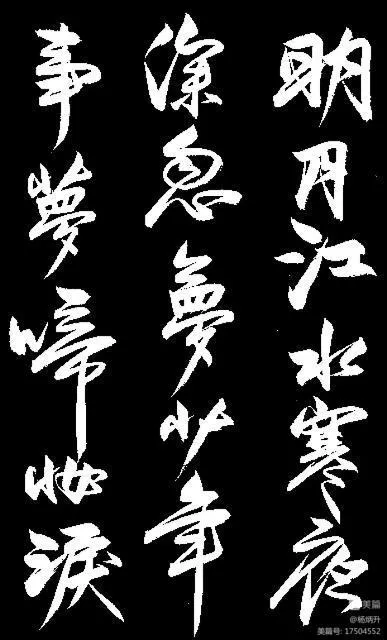 明月江水寒夜
深忽夢少年
事夢啼妝淚
美篇
@杨炳升
美篇号: 17504552